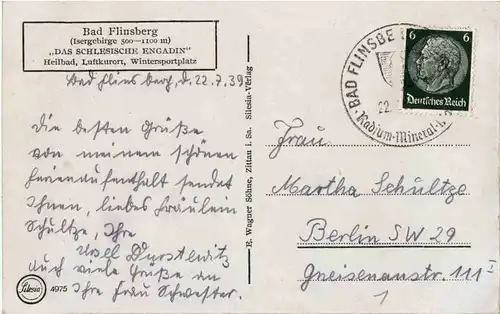 Bad Flinsberg
(Isergebirge 500—1100 m)
„DAS SCHLESISCHE ENGADIN"
Heilbad, Luftkurort, Wintersportplatz
Bad Flinsberg, d. 22.7.39
Die besten Grüße
von meinem schönen
Ferienaufenthalt sendet
Ihnen, liebes Fräulein
Schultze, Ihre
Ursel
auch viele Grüße an
Ihre Frau Schwester.
Silesia 4975
E. Wagner Söhne, Zittau i. Sa. Silesia-Verlag
BAD FLINSBE
22.
Radium-Mineral-
6 6
Deutsches Reich
Frau
Martha Schultze
Berlin SW 29
Gneisenaustr. 111 I
1